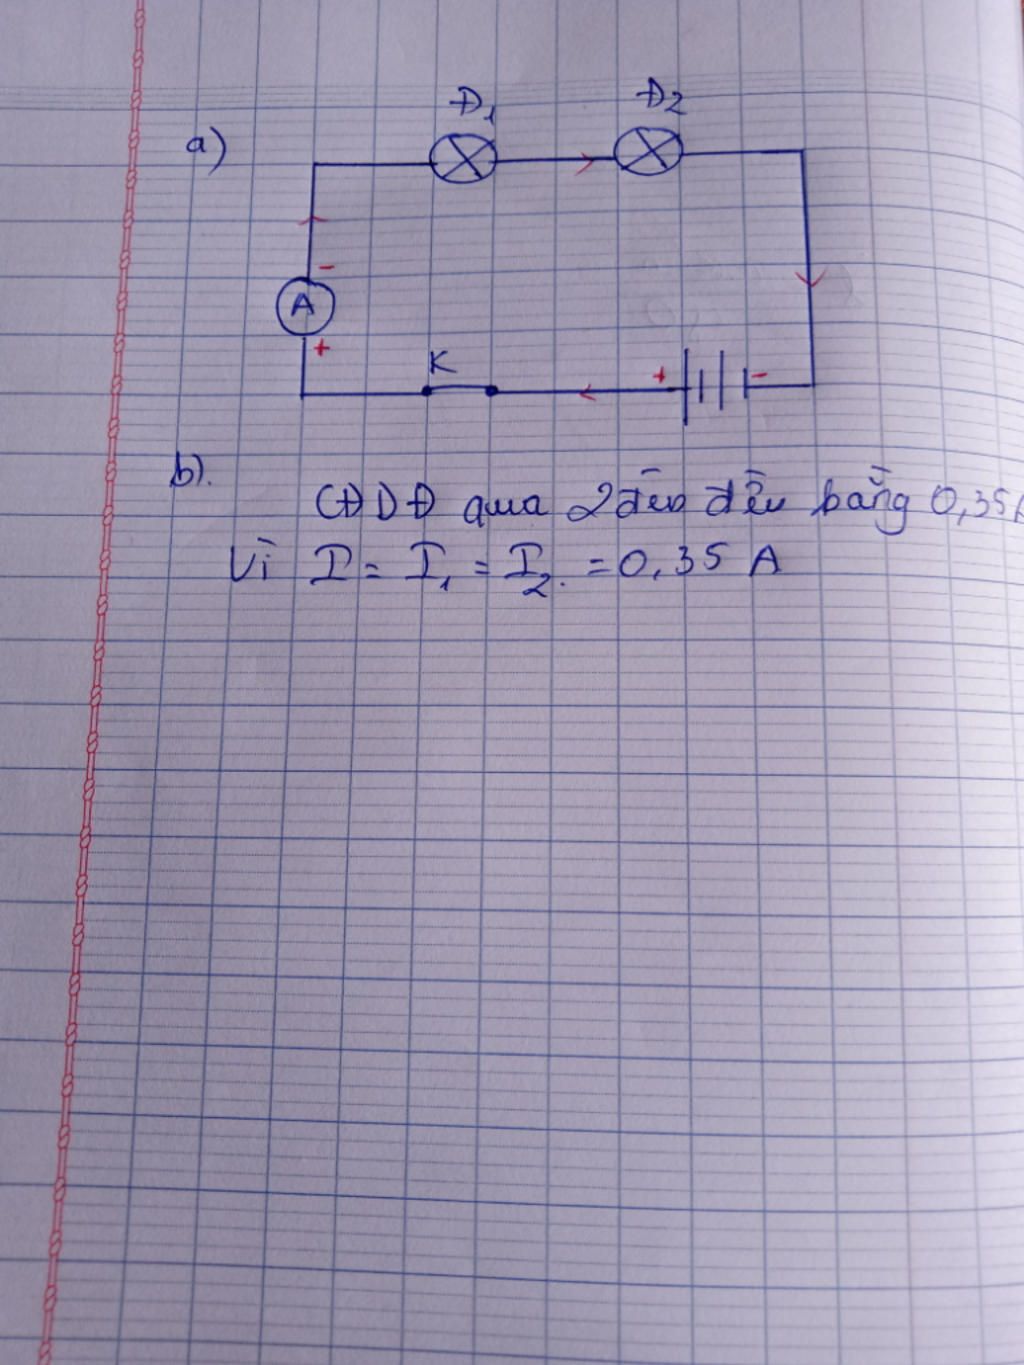 a)
Đ1
Đ2
A
-
+
K
+
-
b).
CĐDĐ qua 2 đèn đều bằng 0,35A
Vì I = I1 = I2. = 0,35 A